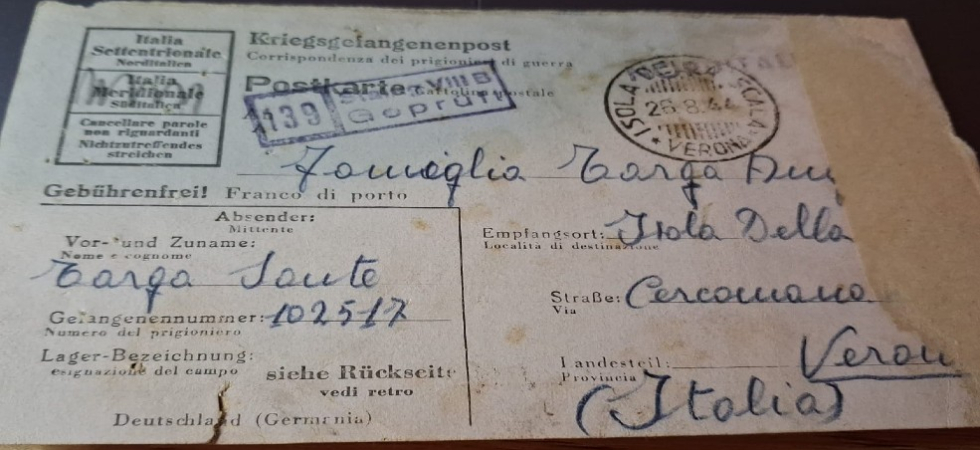 Italia
Settentrionale
Norditalien
Italia
Meridionale
Süditalien
Cancellare parole
non riguardanti
Nichtzutreffendes
streichen
Kriegsgefangenenpost
Corrispondenza dei prigionieri di guerra
Postkarte Cartolina postale
139
Stalag VIII B
Geprüft
ISOLA DELLA SCALA
26.8.44
* VERONA *
Famiglia Targa
Gebührenfrei! Franco di porto
Absender:
Mittente
Vor- und Zuname:
Nome e cognome
Targa Sante
Gefangenennummer: 102517
Numero del prigioniero
Lager-Bezeichnung:
esignazione del campo
siehe Rückseite
vedi retro
Deutschland (Germania)
Empfangsort: Isola Della
Località di destinazione
Straße: Cercomano
Via
Landesteil: Veron
Provincia
(Italia)